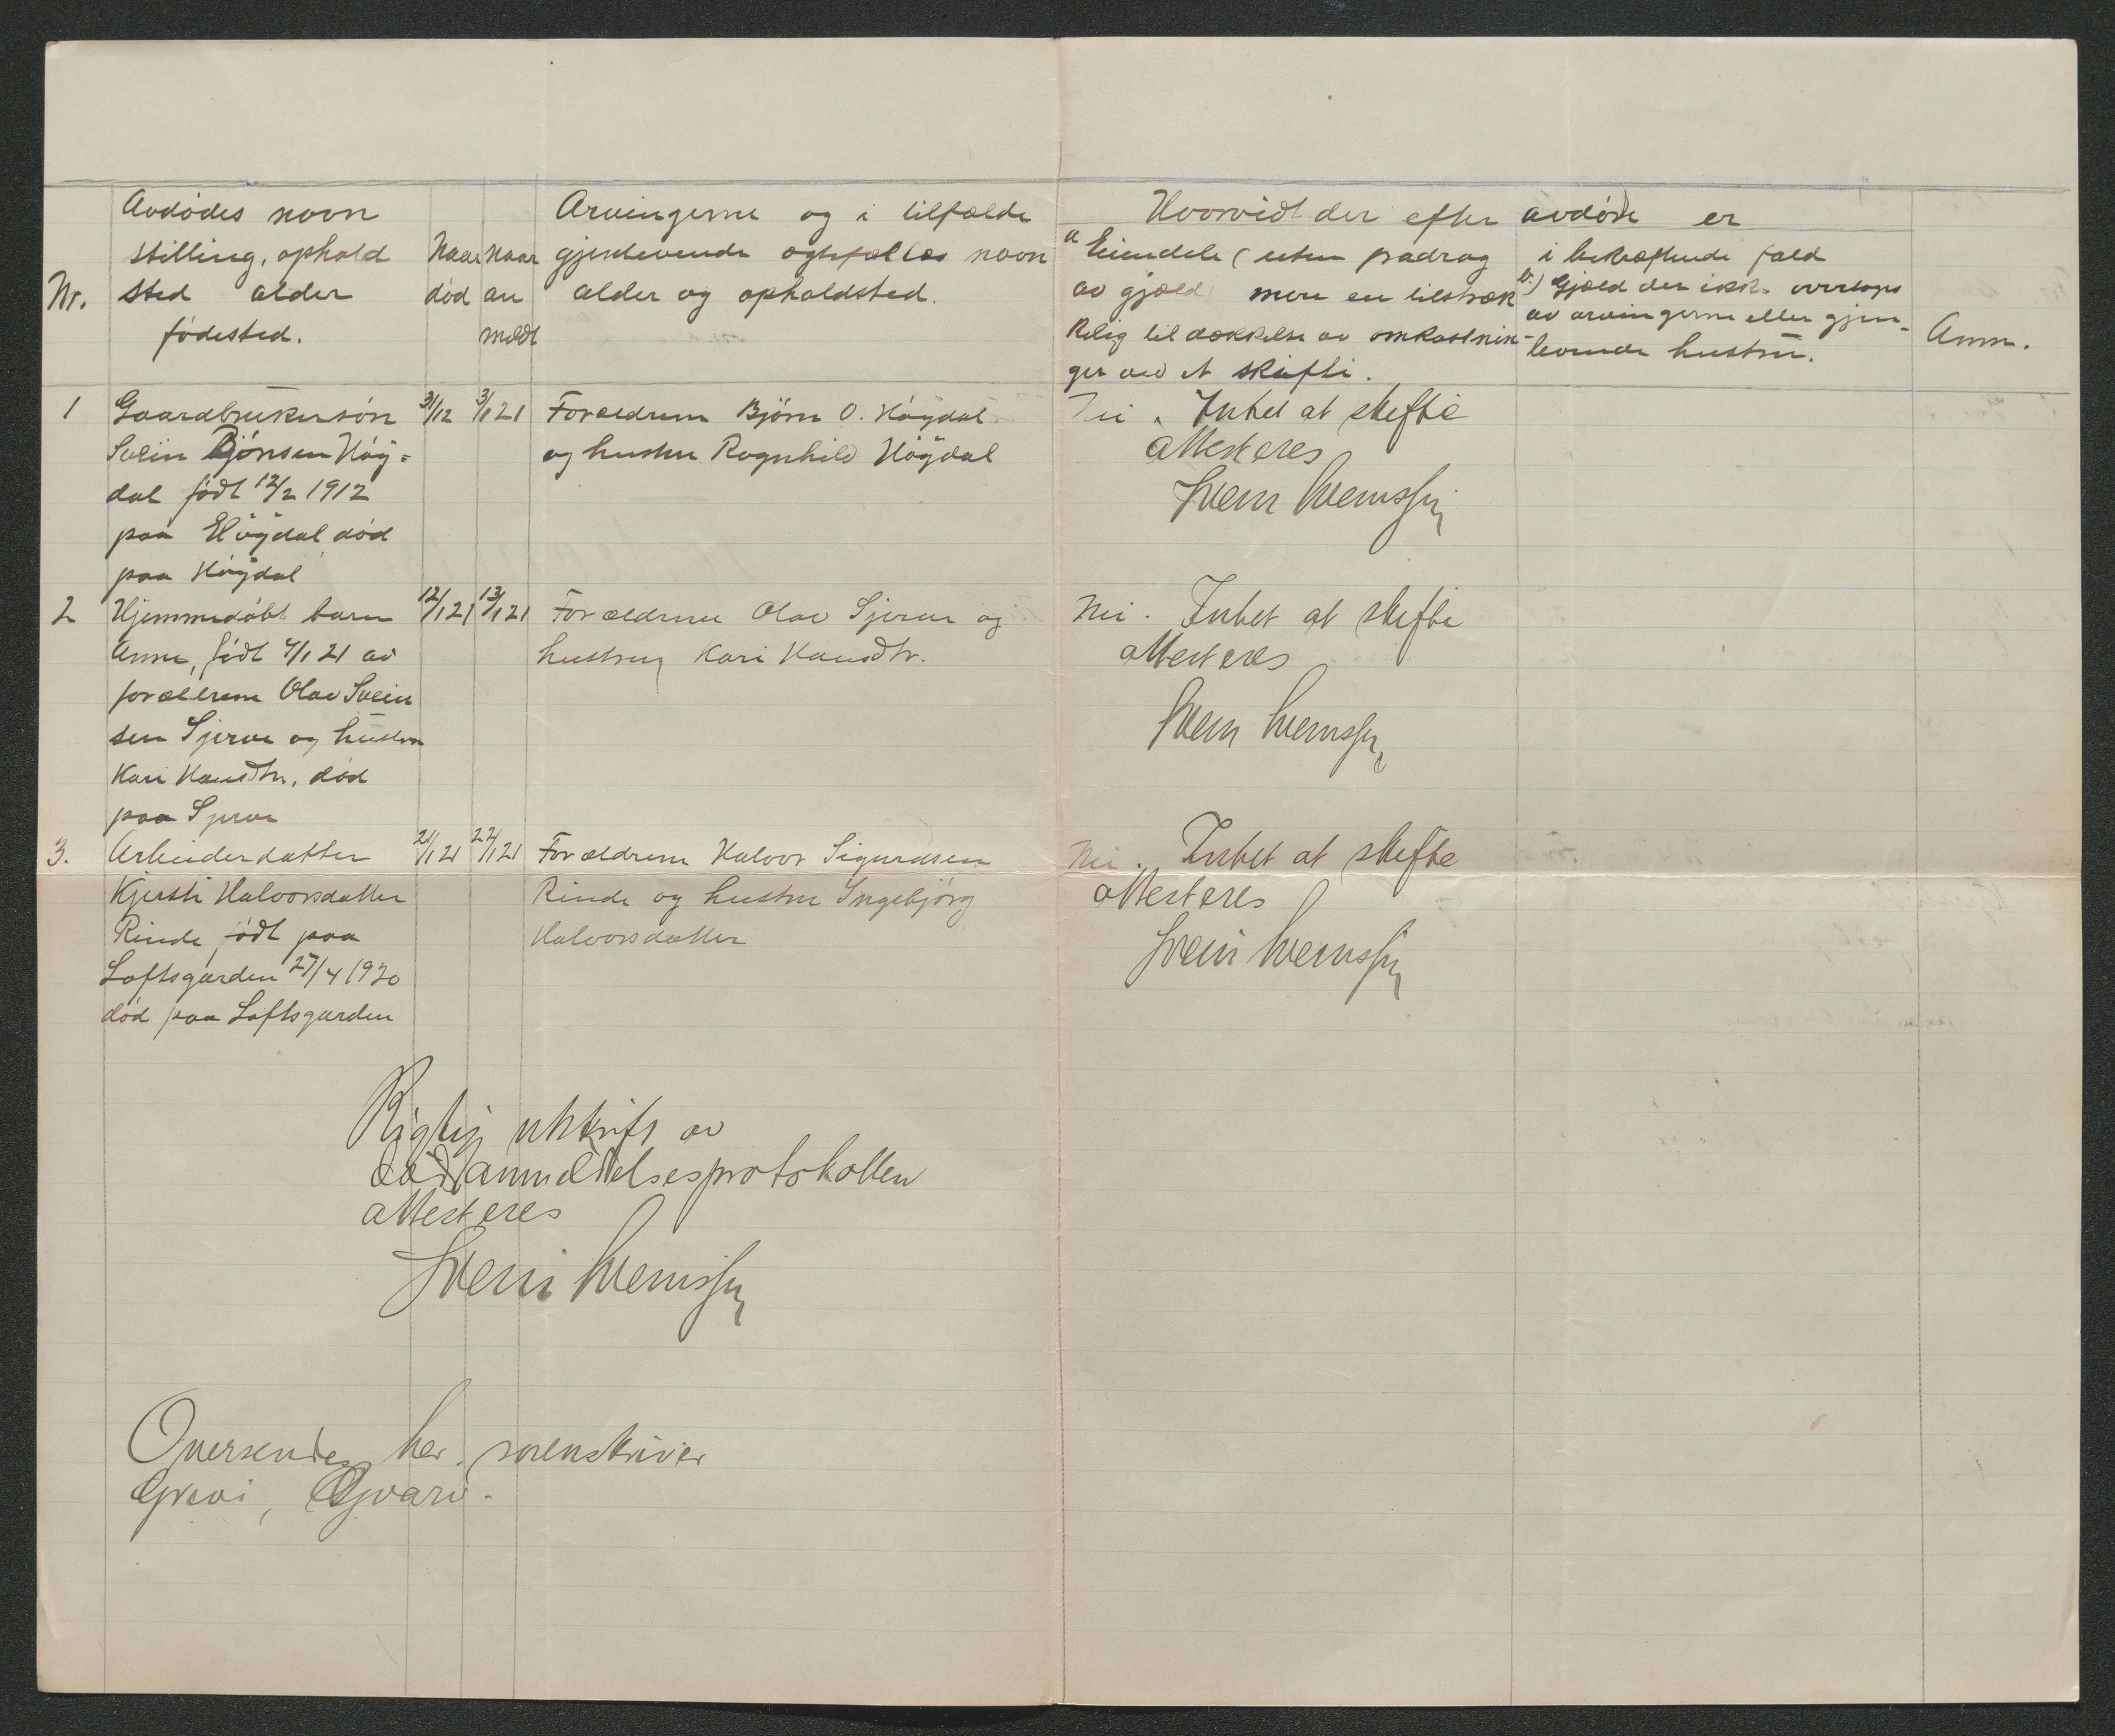 Avdødes navn
stilling, ophold
sted alder
fødested.
Nr.
Naar
død
naar
an
meldt
Arvingerne og i tilfælde
gjenlevende ægtefælles navn
alder og opholdsted.
Hvorvidt der efter avdøde er
a Eiendele (uten fradrag
av gjæld mere en tilstræk
kelig til dækkelse av omkostnin-
ger ved et skifte.
i bekræftende fald
b.) Gjæld der ikke overtages
av arvingerne eller gjen-
levende hustru.
Anm.
1
Gaardbrukersøn
Svein Bjønsen Høg=
dal født 12/2 1912
paa Høgdal død
paa Høgdal
31/12
3/1 21
Forældrene Bjørn O. Høgdal
og hustru Ragnhild Høgdal
Nei. Intet at skifte
attesteres
Svein Sveinssen
2
Hjemmedøbt barn
Anne, født 4/1 21 av
forældrene Olav Svein
sen Sjerve og hustru
Kari , død
paa Sjerve
12/1 21
13/1 21
Forældrene Olav Sjerve og
hustru Kari
Nei. Intet at skifte
attesteres
Svein Sveinssen
3.
Arbeiderdatter
Kjersti Halvorsdatter
Rinde født paa
Loftsgarden 27/4 1920
død paa Loftsgarden
21/1 21
22/1 21
Forældrene Halvor Sigurdsen
Rinde og hustru Ingebjørg
Halvorsdatter
Nei. Intet at skifte
attesteres
Svein Sveinssen
Rigtig utskrift av
dødsanmeldelsesprotokollen
attesteres
Svein Sveinssen
Oversendes hr. sorenskriver
Grevi, Gvarv.